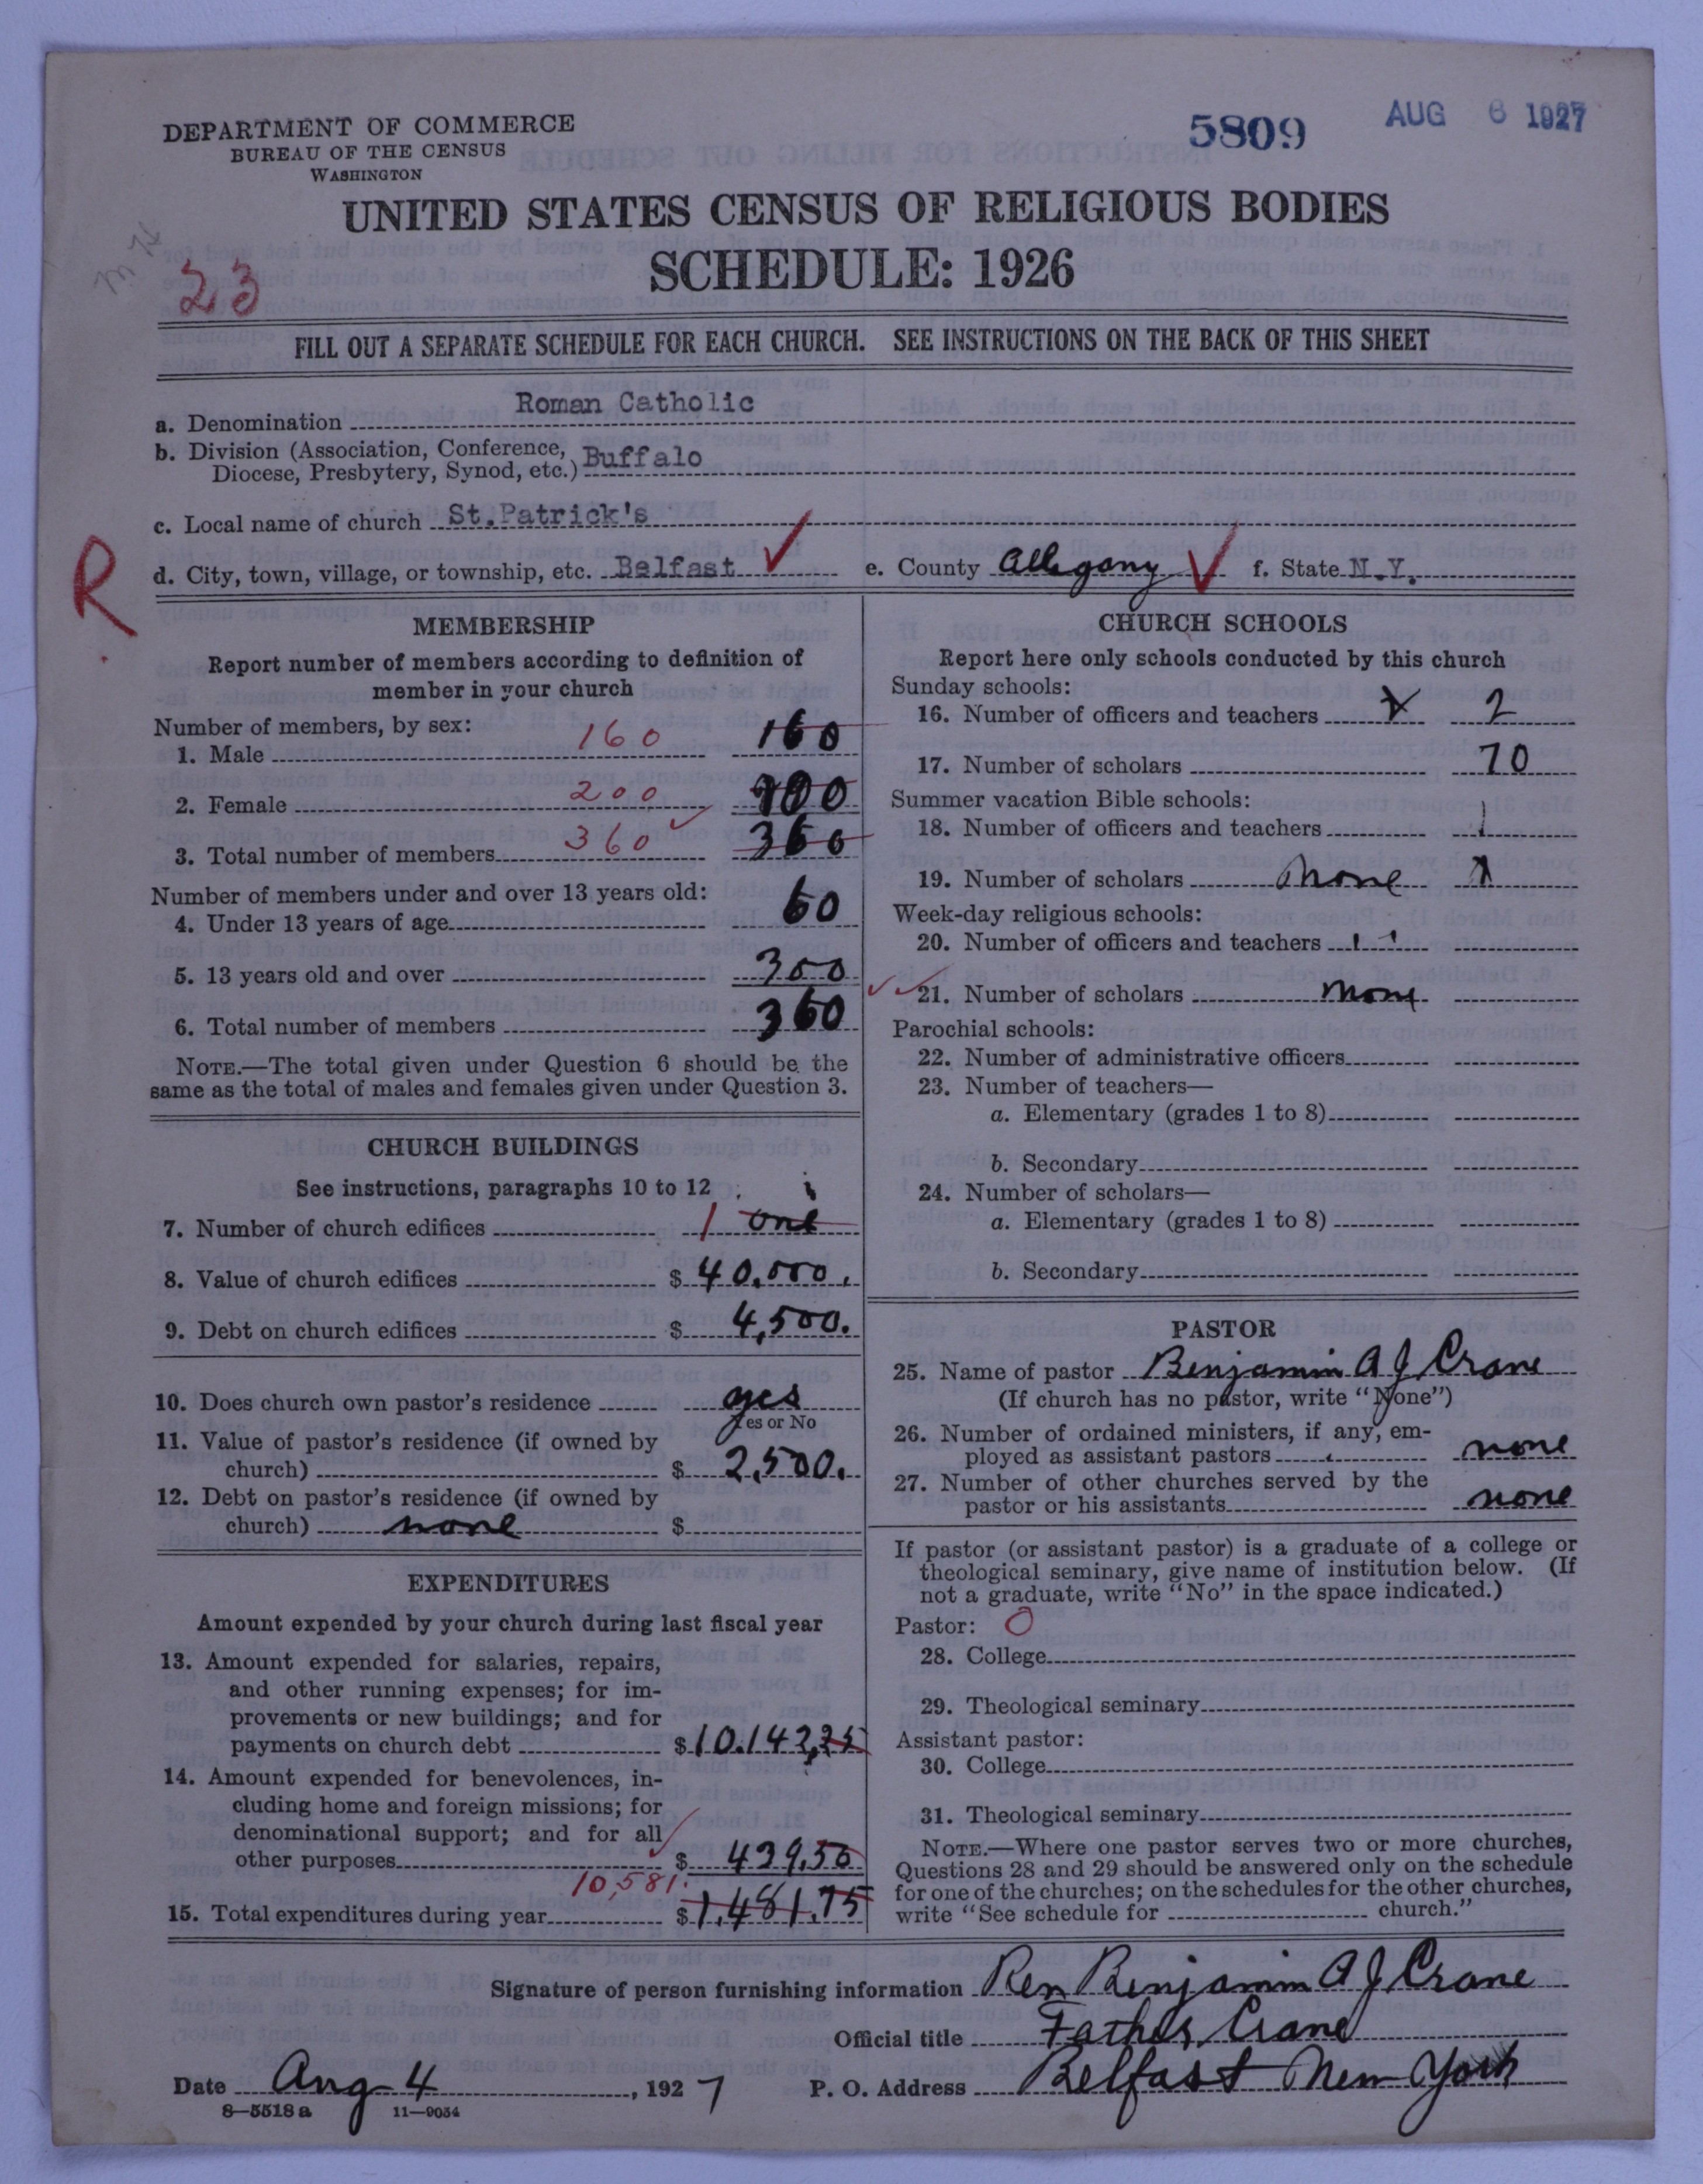 DEPARTMENT OF COMMERCE
BUREAU OF THE CENSUS
WASHINGTON
5809
AUG 6 1927
UNITED STATES CENSUS OF RELIGIOUS BODIES
SCHEDULE: 1926
23
FILL OUT A SEPARATE SCHEDULE FOR EACH CHURCH. SEE INSTRUCTIONS ON THE BACK OF THIS SHEET
a. Denomination Roman Catholic
b. Division (Association, Conference,
Diocese, Presbytery, Synod, etc.) Buffalo
c. Local name of church St.Patrick's
R
d. City, town, village, or township, etc. Belfast ✓ e. County Allegany ✓ f. State N.Y.
MEMBERSHIP
Report number of members according to definition of
member in your church
Number of members, by sex:
1. Male 160 160
2. Female 200
3. Total number of members 360 360
Number of members under and over 13 years old:
4. Under 13 years of age 60
5. 13 years old and over 300
6. Total number of members 360
NOTE.—The total given under Question 6 should be the
same as the total of males and females given under Question 3.
CHURCH BUILDINGS
See instructions, paragraphs 10 to 12
7. Number of church edifices 1 one
8. Value of church edifices $ 40,000.
9. Debt on church edifices $ 4,500.
10. Does church own pastor's residence yes
Yes or No
11. Value of pastor's residence (if owned by
church) $ 2,500.
12. Debt on pastor's residence (if owned by
church) none $
EXPENDITURES
Amount expended by your church during last fiscal year
13. Amount expended for salaries, repairs,
and other running expenses; for im-
provements or new buildings; and for
payments on church debt $ 10.142,25
14. Amount expended for benevolences, in-
cluding home and foreign missions; for
denominational support; and for all
other purposes $ 439,50
10,581.
15. Total expenditures during year $ 1,481.75
CHURCH SCHOOLS
Report here only schools conducted by this church
Sunday schools:
16. Number of officers and teachers 2
17. Number of scholars 70
Summer vacation Bible schools:
18. Number of officers and teachers
19. Number of scholars None
Week-day religious schools:
20. Number of officers and teachers
21. Number of scholars None
Parochial schools:
22. Number of administrative officers
23. Number of teachers—
a. Elementary (grades 1 to 8)
b. Secondary
24. Number of scholars—
a. Elementary (grades 1 to 8)
b. Secondary
PASTOR
25. Name of pastor Benjamin A J Crane
(If church has no pastor, write "None")
26. Number of ordained ministers, if any, em-
ployed as assistant pastors none
27. Number of other churches served by the
pastor or his assistants none
If pastor (or assistant pastor) is a graduate of a college or
theological seminary, give name of institution below. (If
not a graduate, write "No" in the space indicated.)
Pastor: O
28. College
29. Theological seminary
Assistant pastor:
30. College
31. Theological seminary
NOTE.—Where one pastor serves two or more churches,
Questions 28 and 29 should be answered only on the schedule
for one of the churches; on the schedules for the other churches,
write "See schedule for church."
Signature of person furnishing information Rev Benjamin A J Crane
Official title Father Crane
Date Aug 4, 1927 P. O. Address Belfast New York
8—5518 a 11—9054